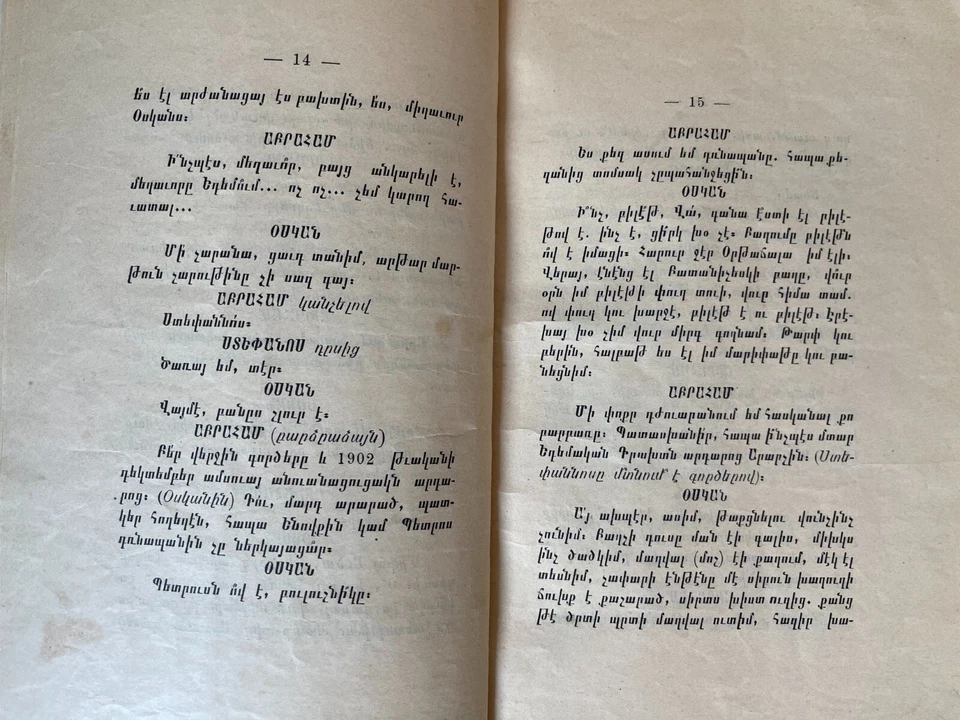 — 14 —
ես էլ արժանացայ էս բախտին, ես, միղաւուր
Օսկանս։
ԱԲՐԱՀԱՄ
Ի՞նչպէս, մեղաւո՞ր, բայց անկարելի է,
մեղաւորը Եդեմո՞ւմ... ոչ ոչ... չեմ կարող հա-
ւատալ...
ՕՍԿԱՆ
Մի չարանա, ցաւդ տանիմ, արթար մար-
թուն չարութինը չի սաղ գայ։
ԱԲՐԱՀԱՄ կանչելով
Ստեփաննո՛ս։
ՍՏԵՓԱՆՈՍ դրսից
Ծառայ եմ, տէր։
ՕՍԿԱՆ
Վայմէ, բանըս չլուր է։
ԱԲՐԱՀԱՄ (բարձրաձայն)
Բե՛ր վերջին գործերը և 1902 թւականի
դեկտեմբեր ամսուայ անուանացուցակն արդա-
րոց։ (Օսկանին) Դո՛ւ, մարդ արարած, պատ-
կեր հողեղէն, հապա Ենովքին կամ Պետրոս
դռնապանին չը ներկայացա՞ր։
ՕՍԿԱՆ
Պետրուսն ո՞վ է, բուլուչնի՞կը։
— 15 —
ԱԲՐԱՀԱՄ
Ես քեզ ասում եմ դռնապանը. հապա քե-
զանից տոմսակ չըպահանջեցի՞ն։
ՕՍԿԱՆ
Ի՞նչ, բիլէ՞թ, Վա՛, դանա է՛ստի էլ բիլէ-
թով է. ինչ է, ցի՞րկ խօ չէ։ Բաղումը բիլէթն
ո՞վ է իմացի։ Հարուր ջէր Օրթաճալա իմ էլի.
Վերայ, էնէնց էլ Բատանիչեսկի բաղը, վո՞ւր
օրն իմ բիլէթի փուղ տուի, վուր հիմա տամ.
ով փուղ կու խարջէ, բիլէթ է ու բիլէթ։ Էրէ-
խայ խօ չիմ վուր միրգ գողնամ։ Թարփ կու
բերին, հալբաթ ես էլ իմ մարիփաթը կու բա-
նեցնիմ։
ԱԲՐԱՀԱՄ
Մի փոքր դժուարանում եմ հասկանալ քո
բարբառը։ Պատասխանի՛ր, հապա ի՞նչպէս մտար
Եդեմական Դրախտն արդարոց Արարչին։ (Ստե-
փաննոսը մտնում է գործերով)։
ՕՍԿԱՆ
Ա՛յ ախպէր, ասիմ, թաքցնելու վունչինչ
չունիմ։ Բաղչի դուսը ման էի գալիս, միխկս
ի՞նչ ծածկիմ, մաղվալ (մոշ) էի քաղում, մէկ էլ
տեսնիմ, չափարի էնթէնը մէ սիրուն խաղուղի
ճուխք է քաշարած, սիրտս խիստ ուզից. քանց
թէ ծրտի պրտի մաղվալ ուտիմ, հազիր խա-